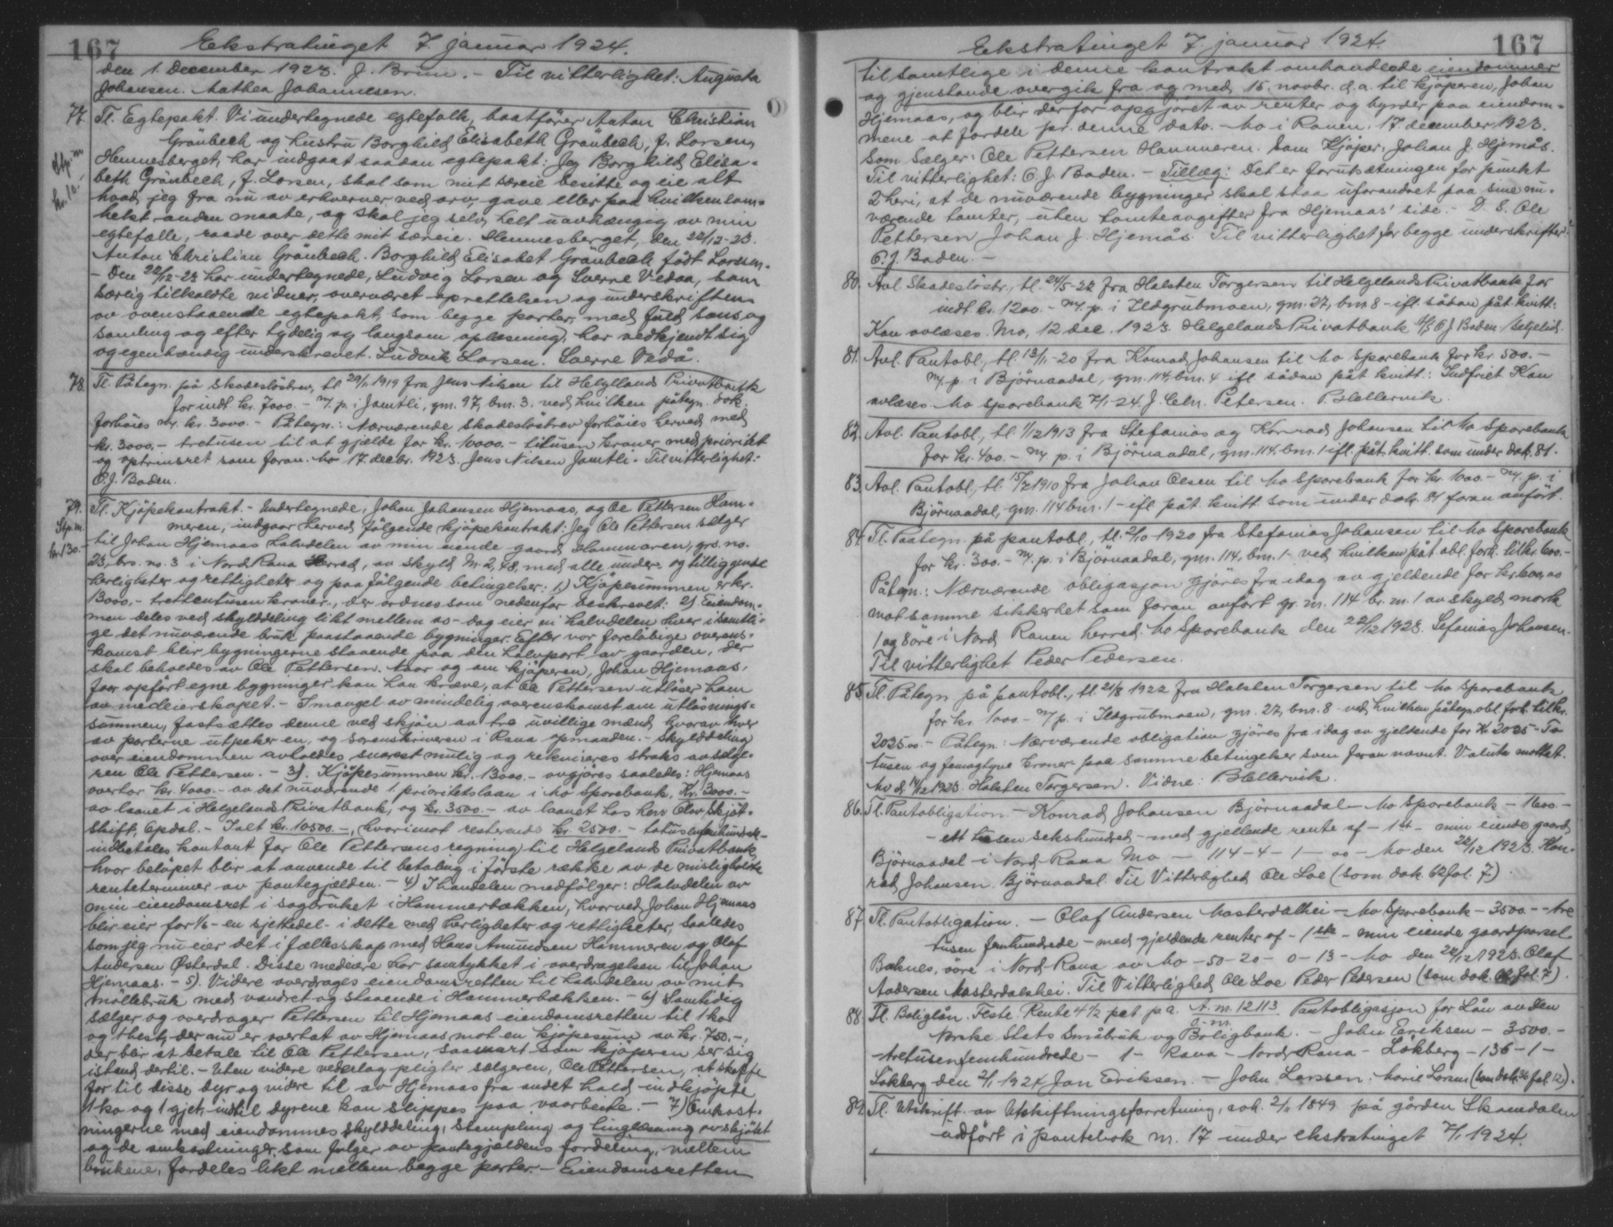 167 Ekstratinget 7. januar 1924.
den 1. December 1923. J. Brun. - Til vitterlighet: Augusta
Johansen. Aathea Johannesen.
77. Tl. Egtepakt. Vi undertegnede egtefolk, baatfører Anton Christian
Grönbech og hustru Borghild Elisabeth Grönbech, f. Lorsen,
Stp. m.
Hemnesberget, har indgaat saadan egtepakt: Jeg Borghild Elisa-
beth Grönbech, f. Lorsen, skal som mit særeie besitte og eie alt
hvad jeg fra nu av erhverver ved arv, gave eller paa hvilkensom-
helst anden maate, og skal jeg selv, helt uavhængig av min
egtefælle, raade over dette mit særeie. Hemnesberget, den 22/12-23.
Anton Christian Grönbech. Borghild Elisabet Grönbech født Lorsen.
- Den 22/12-23 har undertegnede, Ludvig Lorsen og Sverre Vedaa, som
særlig tilkaldte vidner, overværet oprettelsen og underskriften
av ovenstaaende egtepakt, som begge parter, med fuld sans og
samling og efter tydelig og langsom oplæsning, har vedkjendt sig
og egenhændig underskrevet. Ludvik Larsen. Sverre Vedå.
78. Tl. Påtegn. på skadeslösbrev, tl. 29/1 1919 fra Jens Nilsen til Helgelands Privatbank
for indt. kr. 7000.- m. p. i Jamtli, gm. 97, bm. 3. ved hvilken påtegn. dok.
forhöies m. kr. 3000.- Påtegn.: Nærværende skadeslösbrev forhöies herved med
kr. 3000.- tretusen til at gjelde for kr. 10000.- titusen kroner med prioritet
og optrinsret som foran. Mo 17. decbr. 1923. Jens Nilsen Jamtli. Til vitterlighet:
O. J. Baden.
79. Tl. Kjøpekontrakt. - Undertegnede, Johan Johansen Hjemaas, og Ole Pettersen Ham-
Stp. m.
kr. 130.-
meren, indgaar herved følgende kjøpekontrakt: Jeg Ole Pettersen sælger
til Johan Hjemaas halvdelen av min eiende gaard Hammeren, grs. no.
23, brs. no. 3 i Nord Rana Herred, av skyld M. 2,78, med alle under- og tilliggende
herligheter og rettigheter og paa følgende betingelser: 1) Kjøpesummen er kr.
13000.- trettentusen kroner., der ordnes som nedenfor beskrevet: 2) Eiendom-
men deles ved skylddeling likt mellem os - dog eier vi halvdelen hver i samtli-
ge det nuværende bruk paastaaende bygninger. Efter vor foreløbige overens-
komst blir bygningerne staaende paa den halvpart av gaarden, der
skal beholdes av Ole Pettersen. Naar og om kjøperen, Johan Hjemaas,
faar opført egne bygninger kan han kræve, at Ole Pettersen utløser ham
av medeierskapet. - I mangel av mindelig overenskomst om utløsnings-
summen, fastsættes denne ved skjøn av tre uvillige mænd, hvorav hver
av parterne utpeker en, og sorenskriveren i Rana opmanden. - Skylddeling
over eiendommen avholdes snarest mulig og rekvireres straks av sælge-
ren Ole Pettersen. - 3). Kjøpesummen kr. 13000.- avgjøres saaledes: Hjemaas
overtar kr. 4000.- av det nuværende 1 prioritetslaan i Mo Sparebank, kr. 3000.-
av laanet i Helgelands Privatbank, og kr. 3500.- av laanet hos hrr. Olav Skjöt-
skift, Opdal. - Ialt kr. 10500.-, hvorimot resterende kr. 2500.- totusenfemhundrede-
indbetales kontant for Ole Pettersens regning til Helgelands Privatbank
hvor beløpet blir at anvende til betaling i første række av de misligholdte
renteterminer av pantegjælden. - 4) I handelen medfølger: Halvdelen av
min eiendomsret i sagbruket i Hammerbækken, hvorved Johan Hjemaas
blir eier for 1/6 - en sjettedel - i dette med herligheter og rettigheter, saaledes
som jeg nu eier det i fællesskap med Hans Amundsen Hammeren og Olaf
Andersen Østerdal. Disse medeiere har samtykket i overdragelsen til Johan
Hjemaas. - 5). Videre overdrages eiendomsretten til halvdelen av mit
møllebruk med vandret og staaende i Hammerbækken. - 6) Samtidig
sælger og overdrager Pettersen til Hjemaas eiendomsretten til 1 ko
og 1 hest, der nu er overtat av Hjemaas mot en kjøpesum av kr. 750.-,
der blir at betale til Ole Pettersen, saasnart som kjøperen ser sig
istand dertil. - Uten videre vederlag pligter sælgeren, Ole Pettersen, at skaffe
for til disse dyr og videre til av Hjemaas fra andet hold indkjøpte
1 ko og 1 gjet, indtil dyrene kan slippes paa vaarbeite. - 7) Omkost-
ningerne med eiendommens skylddeling, stempling og tinglæsning av skjøtet
og de omkostninger, som følger av pantegjeldens fordeling, mellem
brukene, fordeles likt mellem begge parter. - Eiendomsretten
Ekstratinget 7. januar 1924. 167
til samtlige i denne kontrakt omhandlede eiendommer
og gjenstande overgik fra og med 15. novbr. d. a. til kjøperen, Johan
Hjemaas, og blir derfor opgjøret av renter og byrder paa eiendom-
mene at fordele pr. denne dato. Mo i Ranen. 17 december 1923.
Som Sælger: Ole Pettersen Hammeren. Som Kjøper: Johan J. Hjemås.
Til vitterlighet: O. J. Baden. - Tillæg: Det er forutsætningen for punkt
2 heri, at de nuværende bygninger skal staa uforandret paa sine nu-
værende tomter, uten tomteavgifter fra Hjemaas' side. - D. S. Ole
Pettersen Johan J. Hjemås. Til vitterlighet for begge underskrifter:
O. J. Baden. -
80. Avl. Skadeslösbr., tl. 24/5-22 fra Halsten Torgersen til Helgelands Privatbank for
indt. kr. 1200.- m. p. i Ildgrubmoen, gm. 27, bm. 8 - ifl. sådan påt. kvitt:
Kan avlæses. Mo, 12 dec. 1923. Helgelands Privatbank O J Baden
81. Avl. Pantobl., tl. 13/11-20 fra Konrad Johansen til Mo Sparebank for kr. 500.-
m. p. i Björnaadal, gm. 114, bm. 4 ifl. sådan påt. kvitt: Indfriet Kan
avlæses. Mo Sparebank 2/1-24. J. Chr. Petersen. B. Hellervik.
82. Avl. Pantobl., tl. 1/12 1913 fra Stefanias og Konrad Johansen til Mo Sparebank
for kr. 400.- m. p. i Björnaadal, gm. 114. bm. 1 ifl. påt. kvitt. som under dok. 81.
83. Avl. Pantobl., tl. 15/2 1910 fra Johan Olsen til Mo Sparebank for kr. 1000.- m. p. i
Björnaadal, gm. 114 bm. 1 - ifl. påt. kvitt. som under dok. 81 foran anført.
84. Tl. Paategn. på pantobl., tl. 2/10 1920 fra Stefanias Johansen til Mo Sparebank
for kr. 300.- m. p. i Björnaadal, gm. 114, bm. 1. ved hvilken påt. obl. forh. til kr. 600.-
Påtegn.: Nærværende obligasjon gjöres fra idag av gjeldende for kr. 600,00
mot samme sikkerhet som foran anført gr. m. 114 br. m. 1 av skyld mark
1 og 8 øre i Nord Ranen herred. Mo Sparebank den 22/12 1923. Stefanias Johansen.
Til vitterlighet Peder Pedersen.
85. Tl. Påtegn på pantobl., tl. 21/8 1922 fra Halsten Torgersen til Mo Sparebank
for kr. 1000.- m. p. i Ildgrubmoen, gm. 27, bm. 8 - ved hvilken påtegn. obl. forh. til kr.
2025.00 - Påtegn: Nærværende obligation gjöres fra idag av gjeldende for kr. 2025 - To
tusen og femogtyve kroner paa samme betingelser som foran nævnt. Valuta mottat.
Mo d. 14/12 1923. Halsten Torgersen. Vidne: B. Hellervik.
86. Tl. Pantobligation. - Konrad Johansen Björnaadal - Mo Sparebank - 1600.-
- ett tusen sekshundred - med gjeldende rente af - 1st - min eiende gaard
Björnaadal - i Nord Rana Mo - 114 - 4 - 1 - 00 - Mo den 22/12 1923. Kon-
rad Johansen. Björnaadal. Til Vitterlighed Ole Loe (som dok. 62 fol. 7).
87. Tl. Pantobligation. - Olaf Andersen Masterdalhei - Mo Sparebank - 3500.- - tre
tusen femhundrede - med gjeldende renter af - 1ste - min eiende gaardparsel
Baknes, øvre i Nord Rana av Mo - 50 - 20 - 0 - 13 - Mo den 22/12 1923. Olaf
Andersen Masterdalshei. Til Vitterlighed Ole Loe Peder Pedersen (som dok. 62 fol. 7).
88. Tl. Boliglån. Feste. Rente 4 1/2 pct. p. a. A. m. 12113 Pantobligasjon for Lån av den
Norske Stats Småbruk og Boligbank. - John Eriksen - 3500.-
tretusenfemhundrede - 1 - Rana - Nord Rana - Løkberg - 136 - 1 -
Løkberg den 2/1 1924. Jon Eriksen. - John Larssen. Marie Lorsen (som dok. 36 fol. 12).
89. Tl. Utskrift av Utskiftningsforretning, avh. 2/11 1849 på gården Skamdalen
udført i pantebok m. 17 under ekstratinget 7/1 1924.